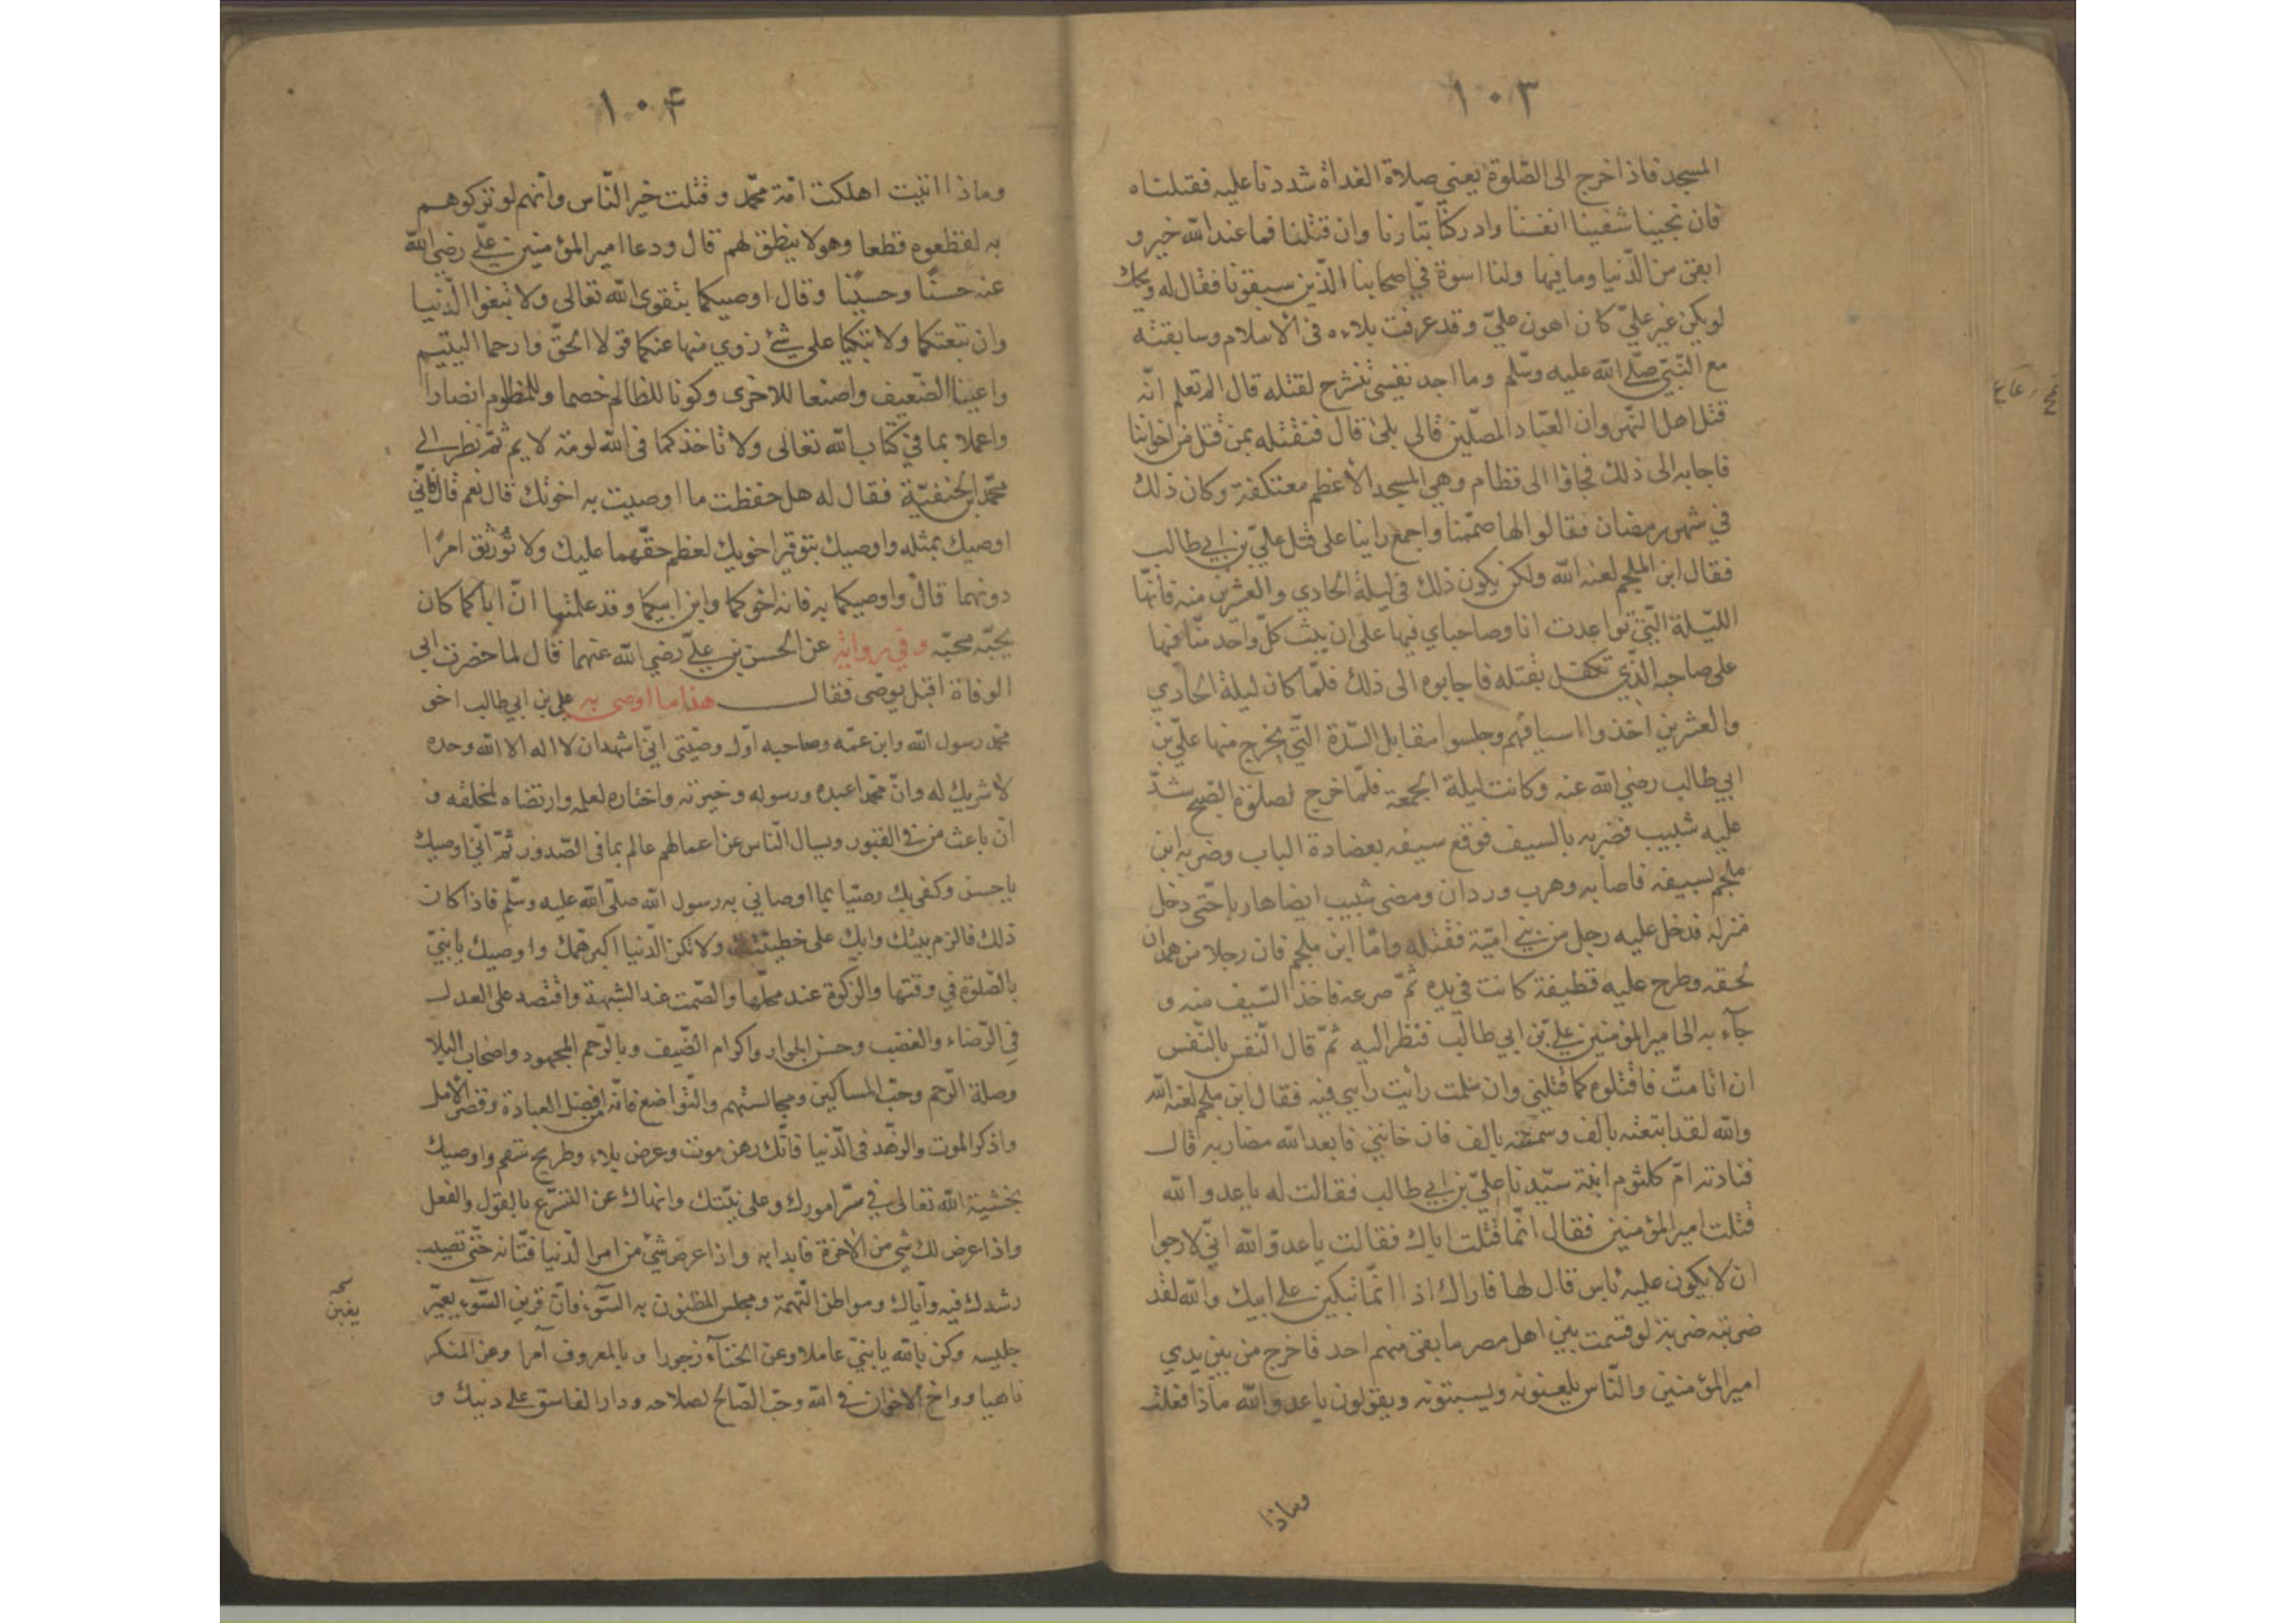 ١٠٣
المسجد فاذا خرج الى الصّلوة يعني صلاة الغداة شددنا عليه فقتلناه
فان نجينا شفينا انفسنا وادركنا بثارنا وان قتلنا فما عند الله خير و
ابقى من الدّنيا وما فيها ولنا اسوة في اصحابنا الّذين سبقونا فقال له ويحك
لو يكن غير عليّ كان اهون عليّ وقد عرفت بلاءه فى الاسلام وسابقته
مع النّبيّ صلّى الله عليه وسلّم وما اجد نفسي تنشرح لقتله قال الم تعلم انّه
قتل اهل النّهروان العبّاد المصلّين قالى بلى قال فنقتله بمن قتل من اخواننا
فاجابه الى ذلك فجاؤا الى قظام وهي المسجد الاعظم معتكفة وكان ذلك
في شهر رمضان فقالوا لها صمّمنا واجمع راينا على قتل عليّ بن ابي طالب
فقال ابن الملجم لعنه الله ولكن يكون ذلك في ليلة الحادي والعشرين منه فانّها
اللّيلة الّتي تواعدت انا وصاحباي فيها على ان يثب كلّ واحد منّا فيها
على صاحبه الّذي تكفل بقتله فاجابوه الى ذلك فلمّا كان ليلة الحادي
والعشرين اخذوا اسيافهم وجلسوا مقابل السّدّة الّتي يخرج منها عليّ بن
ابي طالب رضي الله عنه وكانت ليلة الجمعة فلمّا خرج لصلوة الصّبح شدّ
عليه شبيب فضربه بالسيف فوقع سيفه بعضادة الباب وضربه ابن
ملجم بسيفه فاصابه وهرب وردان ومضى شبيب ايضا هاربا حتّى دخل
منزله فدخل عليه رجل من بني اميّة فقتله وامّا ابن ملجم فان رجلا من همدان
لحقه وطرح عليه قطيفة كانت في يده ثمّ صرعه فاخذ السّيف منه و
جآء به الى امير المؤمنين عليّ بن ابي طالب فنظر اليه ثمّ قال النّفس بالنّفس
ان انا متّ فاقتلوه كما قتلني وان سلمت رأيت رايي فيه فقال ابن ملجم لعنه الله
والله لقد ابتعته بالف وسممته بالف فان خانني فابعد الله مضاربه قال
فنادته امّ كلثوم ابنة سيّدنا عليّ بن ابي طالب فقالت له يا عدو الله
قتلت امير المؤمنين فقال انّما قتلت اباك فقالت يا عدوّ الله انّي لارجوا
ان لا يكون عليه بأس قال لها فاراك اذا انّما تبكين على ابيك والله لقد
ضربته ضربة لو قسمت بين اهل مصر ما بقى منهم احد فاخرج من بين يدي
امير المؤمنين والنّاس يلعنونه ويسبّونه ويقولون يا عدو الله ماذا فعلت
وماذا
١٠۴
وماذا اتيت اهلكت امّة محمّد وقتلت خير النّاس وانّهم لو تركوهم
به لقظعوه قطعا وهو لا ينطق لهم قال ودعا امير المؤمنين عليّ رضي الله
عنه حسنًا وحسينًا وقال اوصيكما بتقوى الله تعالى ولا تبغوا الدّنيا
وان تبعتكما ولا تبكيا على شئ زوي منها عنكما قولا الحقّ وارحما اليتيم
واعينا الضّعيف واصنعا للاخرى وكونا للظالم خصما وللمظلوم انصارا
واعملا بما في كتاب الله تعالى ولا تاخذكما فى الله لومة لايم ثمّ نظر الى
محمّد ابن الحنفيّة فقال له هل حفظت ما اوصيت به اخوتك قال نعم قال فانّي
اوصيك بمثله واوصيك بتوقير اخويك لعظم حقّهما عليك ولا توثق امرًا
دونهما قال واوصيكما به فانه اخوكما وابن ابيكما وقد علمتما انّ اباكما كان
يحبّه محبّه وفي رواية عن الحسن بن عليّ رضي الله عنهما قال لما حضرت ابى
الوفاة اقبل يوصى فقال هذا ما اوصى به علي بن ابي طالب اخو
محمّد رسول الله وابن عمّه وصاحبه اوّل وصيّتى انّي اشهد ان لا اله الا الله وحده
لا شريك له وانّ محمّدا عبده ورسوله وخيرته واختاره لعلمه وارتضاه لخلقه و
انّ باعث من فى القبور ويسال النّاس عن اعمالهم عالم بما فى الصّدور ثمّ انّي اوصيك
يا حسن وكفى بك وصيّا بما اوصاني به رسول الله صلّى الله عليه وسلّم فاذا كان
ذلك فالزم بيتك وابك على خطيئتك ولا تكن الدّنيا اكبر همّك واوصيك يا بنيّ
بالصّلوة في وقتها والزّكوة عند محلّها والصّمت عند الشبهة واقتصد على العدل
في الرّضاء والغضب وحسن الجوار واكرام الضّيف وبالرّحم المجهود واصحاب البلا
وصلة الرّحم وحبّ المساكين ومجالستهم والتّواضع فانّه افضل العبادة وقصر الامل
واذكر الموت والزهّد فى الدّنيا فانّك رهن موت وعرض بلاء وطريح سقم واوصيك
بخشية الله تعالى في سرّ امورك وعلى نيّتك وانهاك عن التّسرّع بالقول والفعل
واذا عرض لك شي من الآخرة فابدا به واذا عرض شئ من امر الدّنيا فتّانه حتّى تصيب
رشدك فيه وايّاك ومواطن التّهمة ومجلس المظنون به السّوء فانّ قرين السّوء يعيّر
جليسه وكن بالله يا بنيّ عاملا وعن الخنآء زجورا و بالمعروف آمرا وعن المنكر
ناهيا وواخ الاخوان فى الله وحبّ الصّالح لصلاحه ودار الفاسق على دينك و